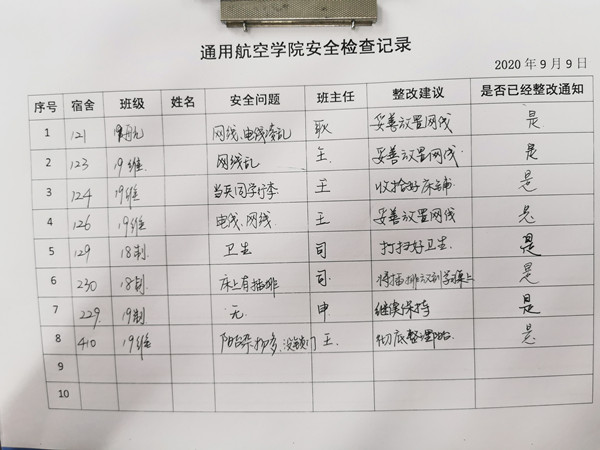 通用航空学院安全检查记录
2020年9月9日
序号 宿舍 班级 姓名 安全问题 班主任 整改建议 是否已经整改通知
1 121 网线、电线凌乱 耿 妥善放置网线 是
2 123 19维 网线乱 王 妥善放置网线. 是
3 124 19维 李 王 收拾好床铺 是
4 126 19维 电线、网线 王 妥善放置网线 是
5 129 18制 卫生 司 打扫好卫生. 是
6 230 18制 床上有插排 司. 将插排放到学习桌上 是
7 229. 19制 无 申 继续保持 是
8 410 19维 阳台杂物多, 没锁门 王. 彻底整理阳台. 是
9
10